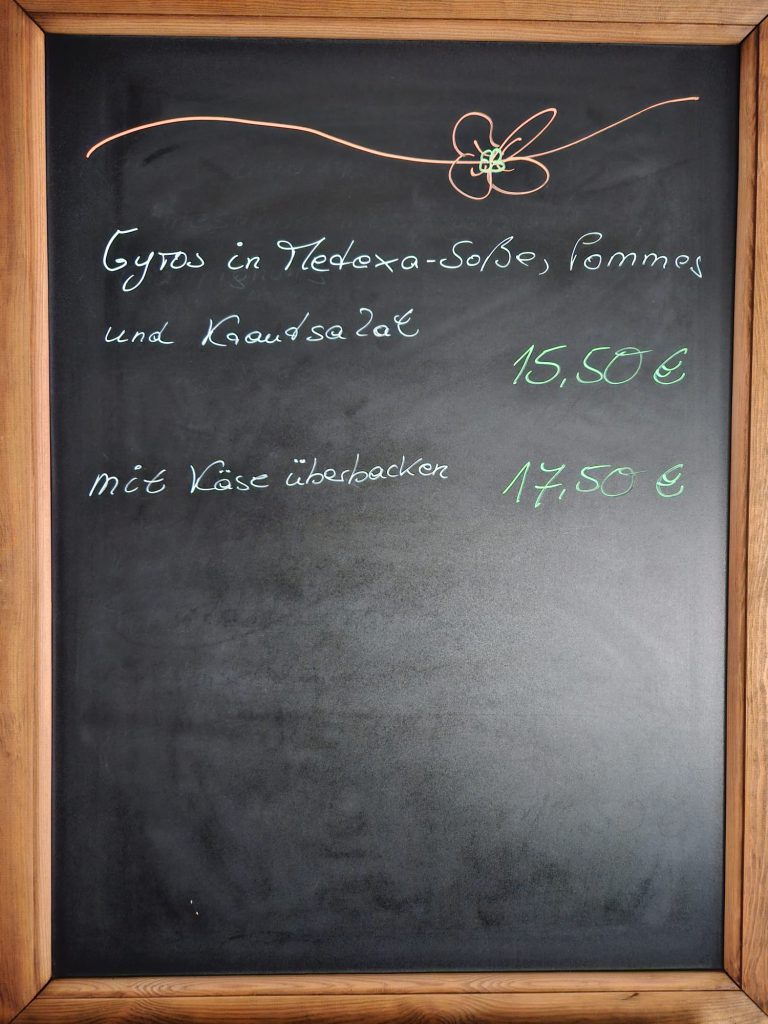 Gyros in Metexa-Soße, Pommes
und Krautsalat
15,50 €
mit Käse überbacken 17,50 €